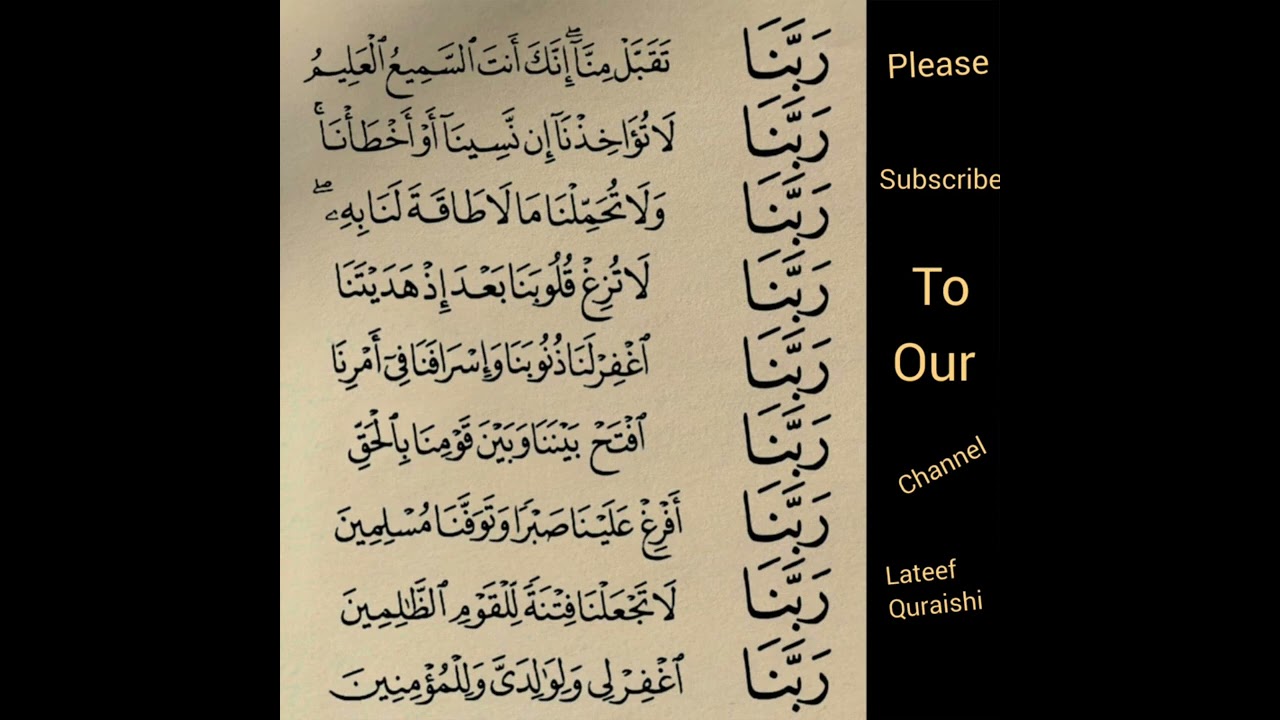 رَبَّنَا تَقَبَّلْ مِنَّآ ۖ إِنَّكَ أَنتَ ٱلسَّمِيعُ ٱلْعَلِيمُ
رَبَّنَا لَا تُؤَاخِذْنَآ إِن نَّسِينَآ أَوْ أَخْطَأْنَا ۚ
رَبَّنَا وَلَا تُحَمِّلْنَا مَا لَا طَاقَةَ لَنَا بِهِۦ ۖ
رَبَّنَا لَا تُزِغْ قُلُوبَنَا بَعْدَ إِذْ هَدَيْتَنَا
رَبَّنَا ٱغْفِرْ لَنَا ذُنُوبَنَا وَإِسْرَافَنَا فِىٓ أَمْرِنَا
رَبَّنَا ٱفْتَحْ بَيْنَنَا وَبَيْنَ قَوْمِنَا بِٱلْحَقِّ
رَبَّنَا أَفْرِغْ عَلَيْنَا صَبْرًا وَتَوَفَّنَا مُسْلِمِينَ
رَبَّنَا لَا تَجْعَلْنَا فِتْنَةً لِّلْقَوْمِ ٱلظَّٰلِمِينَ
رَبَّنَا ٱغْفِرْ لِى وَلِوَٰلِدَىَّ وَلِلْمُؤْمِنِينَ
Please
Subscribe
To
Our
Channel
Lateef
Quraishi